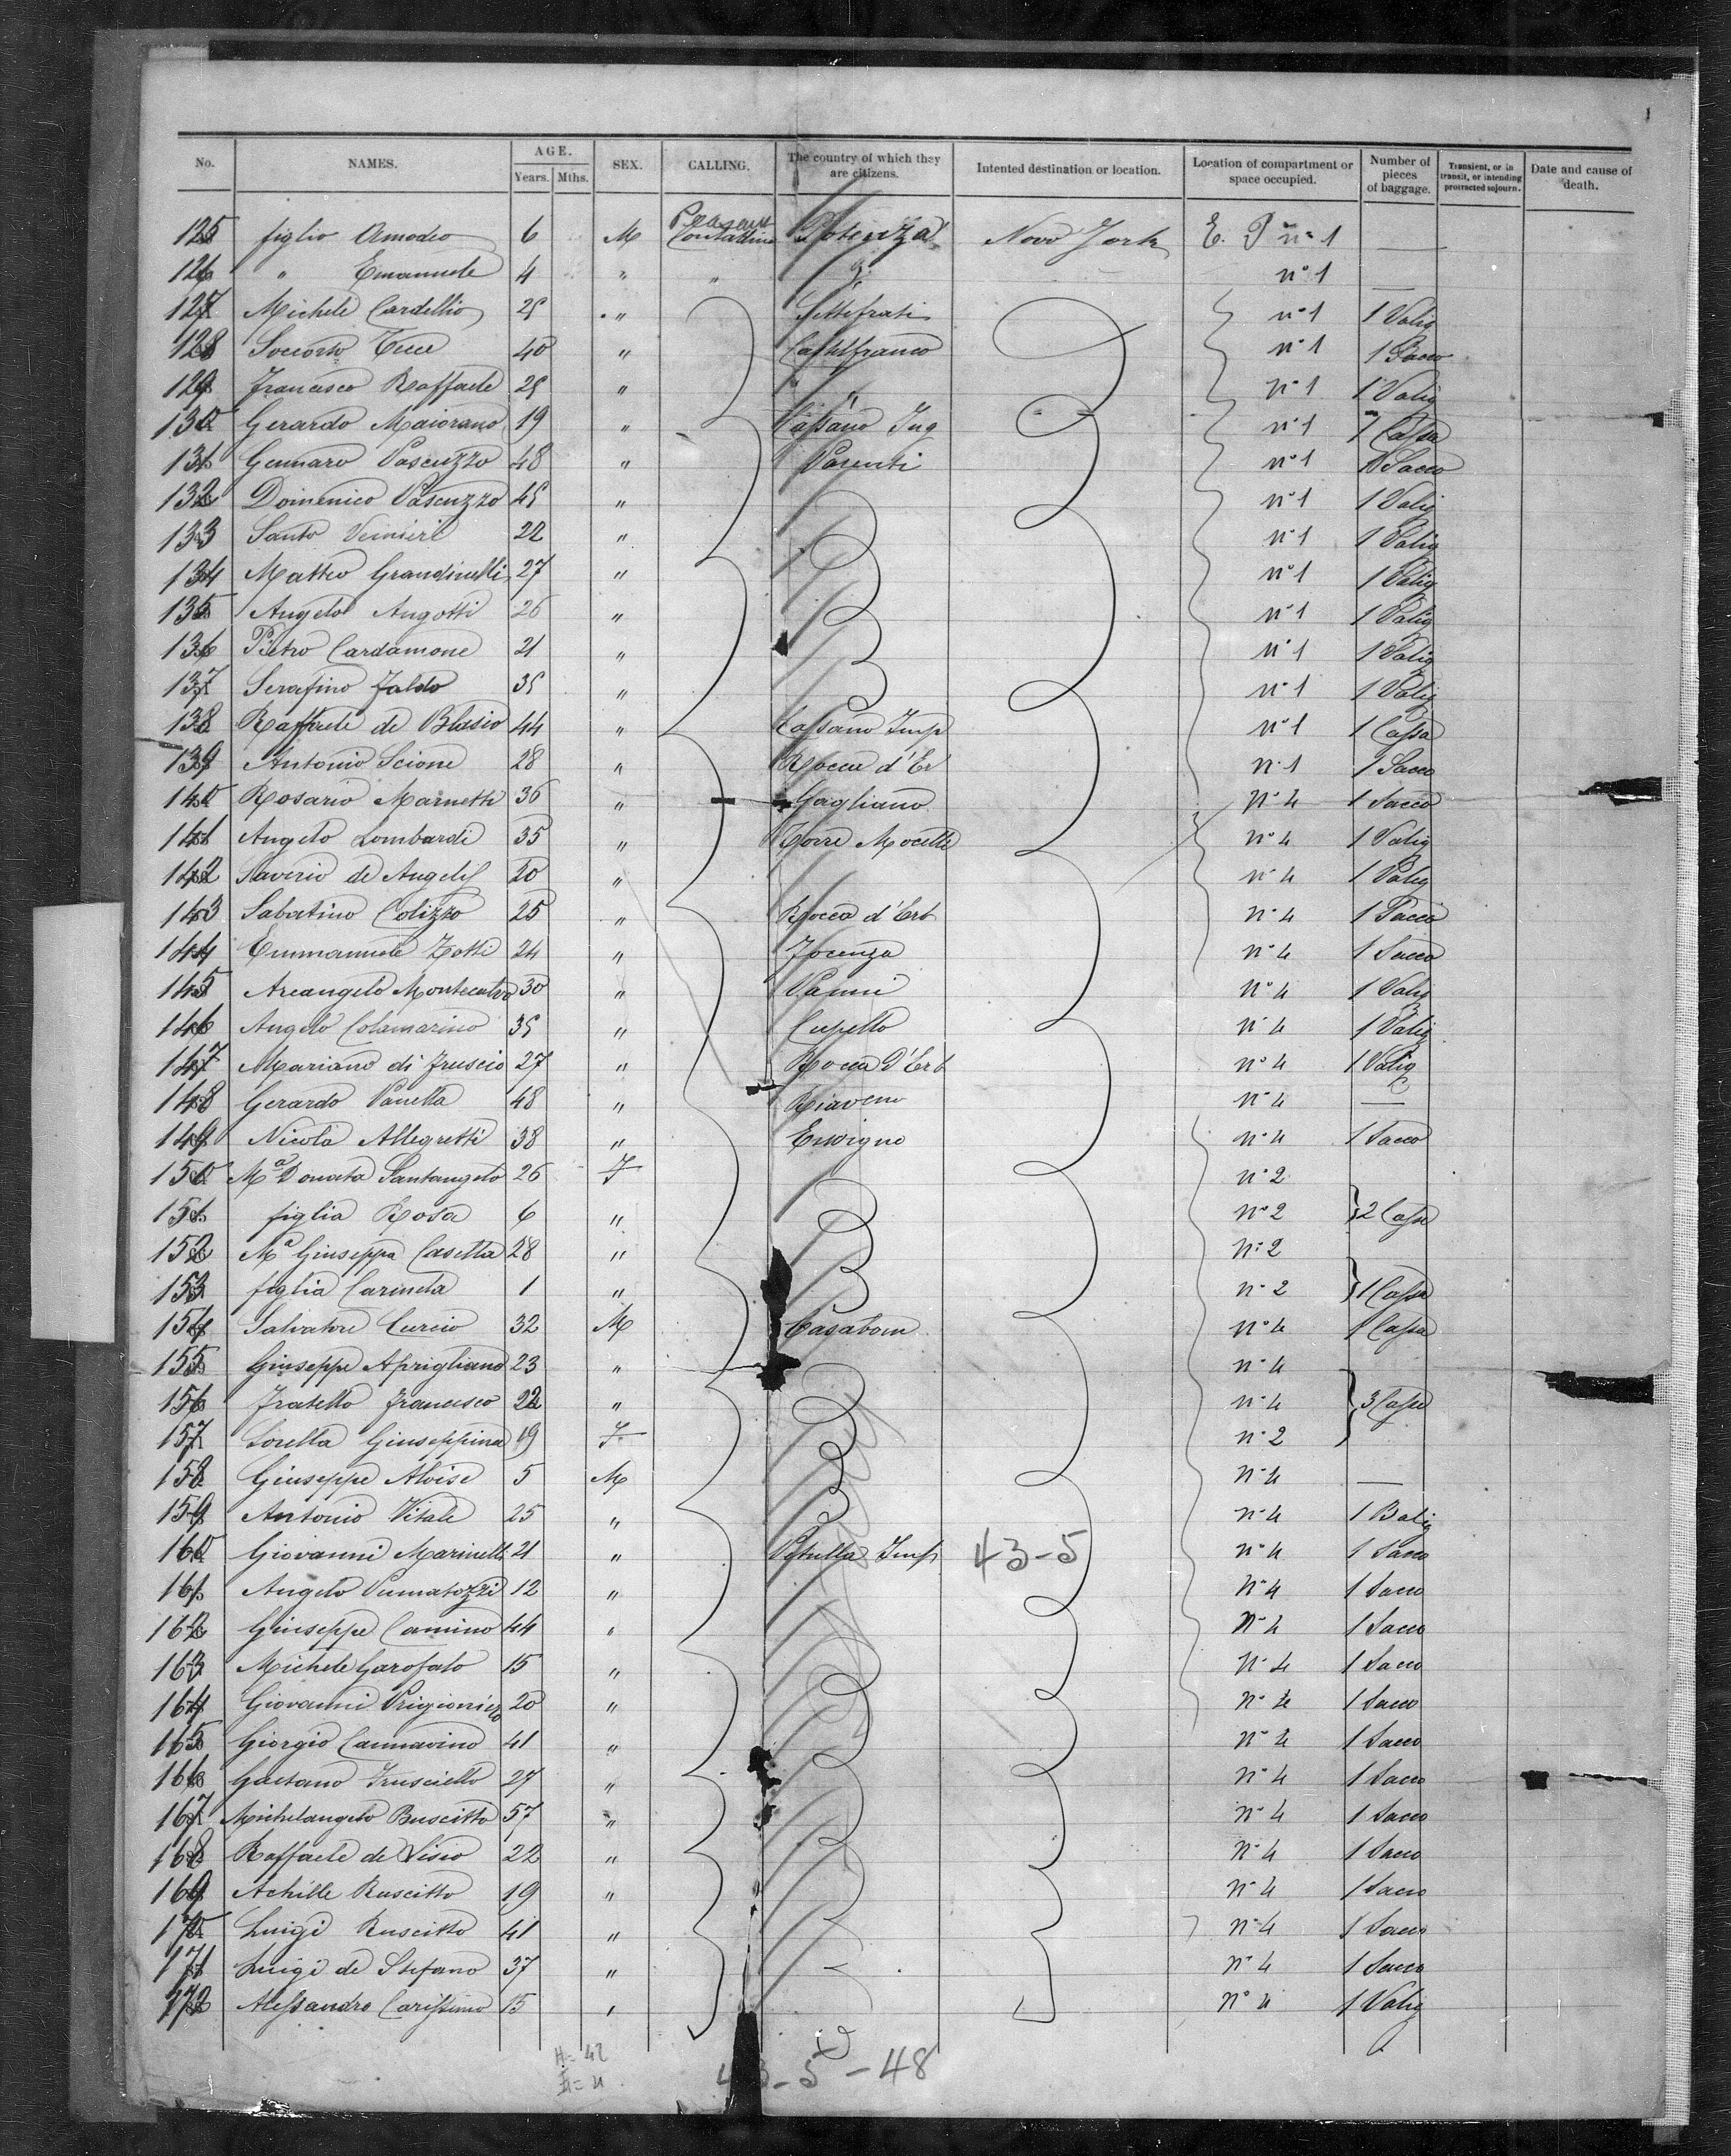 No. NAMES. AGE. Years. Mths. SEX. CALLING. The country of which they are citizens. Intented destination or location. Location of compartment or space occupied. Number of pieces of baggage. Transient, or in transit, or intending protracted sojourn. Date and cause of death.
125 figlio Amodeo 6 M Peasant Contadino Potenza Novo York E. P n° 1 —
126 " Emanuele 4 " " n° 1 —
127 Michele Cardellio 25 " Settefrati n° 1 1 Valig
128 Soccorso Tecce 40 " Castelfranco n° 1 1 Sacco
129 Francesco Raffaele 25 " " n° 1 1 Valig
130 Gerardo Maiorano 19 " Cassano Jng n° 1 1 Cassa
131 Gennaro Pascuzzo 48 " Parenti n° 1 1 Sacco
132 Domenico Pascuzzo 45 " n° 1 1 Valig
133 Santo 22 " n° 1 1 Valig
134 Matteo Grandinelli 27 " n° 1 1 Valig
135 Angelo Angotti 26 " n° 1 1 Valig
136 Pietro Cardamone 21 " n° 1 1 Valig
137 Serafino Faldo 35 " n° 1 1 Valig
138 Raffaele de Blasio 44 " Cassano Jmp n° 1 1 Cassa
139 Antonio Scione 28 " Rocca d'Er n° 1 1 Sacco
140 Rosario Marnetti 36 " Gagliano n° 4 1 Sacco
141 Angelo Lombardi 35 " Torre Mocelle n° 4 1 Valig
142 Saverio de Angelis 20 " n° 4 1 Valig
143 Sabatino Colizzo 25 " Rocca d'Erb n° 4 1 Sacco
144 Emmanuele Zotti 24 " Jocenza n° 4 1 Sacco
145 Arcangelo Montecalvo 30 " Panni n° 4 1 Valig
146 Angelo Colamarino 35 " Cupello n° 4 1 Valig
147 Mariano di Fruscio 27 " Rocca D'Erb n° 4 1 Valig
148 Gerardo Panella 48 " n° 4 —
149 Nicola Allegretti 38 " n° 4 1 Sacco
150 Mª Donata Santangelo 26 F n° 2
151 figlia Rosa 6 " n° 2 } 2 Casse
152 Mª Giuseppa Casetta 28 " n° 2
153 figlia Carmela 1 " n° 2 } 1 Cassa
154 Salvatore Curcio 32 M Casabon n° 4 1 Cassa
155 Giuseppe Aprigliano 23 " n° 4
156 Fratello Francesco 22 " n° 4 } 3 Casse
157 Sorella Giuseppina 19 F n° 2
158 Giuseppe Aloise 5 M n° 4 —
159 Antonio Vitale 25 " n° 4 1 Balig
160 Giovanni Marinelli 21 " Petrella Jmp 43-5 n° 4 1 Sacco
161 Angelo 12 " n° 4 1 Sacco
162 Giuseppe Camino 44 " n° 4 1 Sacco
163 Michele Garofalo 15 " n° 4 1 Sacco
164 Giovanni Prigioniero 20 " n° 4 1 Sacco
165 Giorgio Cannavino 41 " n° 4 1 Sacco
166 Gaetano Frusciello 27 " n° 4 1 Sacco
167 Michelangelo Buscitto 57 " n° 4 1 Sacco
168 Raffaele de Lisio 22 " n° 4 1 Sacco
169 Achille Ruscitto 19 " n° 4 1 Sacco
170 Luigi Ruscitto 41 " n° 4 1 Sacco
171 Luigi de Stefano 37 " n° 4 1 Sacco
172 Alessandro Carissimo 15 " n° 4 1 Valig
43-5-48